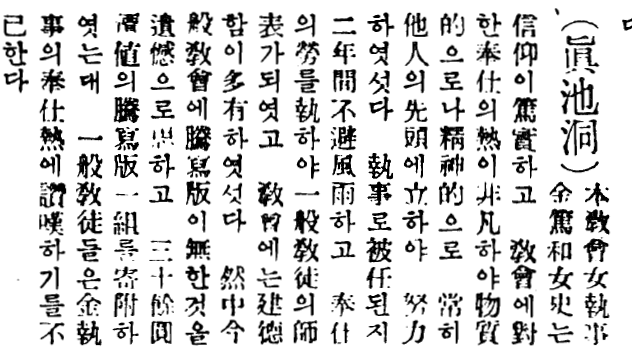 (眞池洞) 本敎會女執事
金篤和女史는
信仰이篤實하고 敎會에對
한奉仕의熱이非凡하야物質
的으로나精神的으로 常히
他人의先頭에立하야 努力
하엿섯다 執事로被任된지
二年間不避風雨하고 奉仕
의勞를執하야一般敎徒의師
表가되엿고 敎會에는建德
함이多有하엿섯다 然中今
般敎會에騰寫版이無한것을
遺憾으로思하고 三十餘圓
價値의騰寫版一組를寄附하
엿는대 一般敎徒들은金執
事의奉仕熱에讚嘆하기를不
已한다